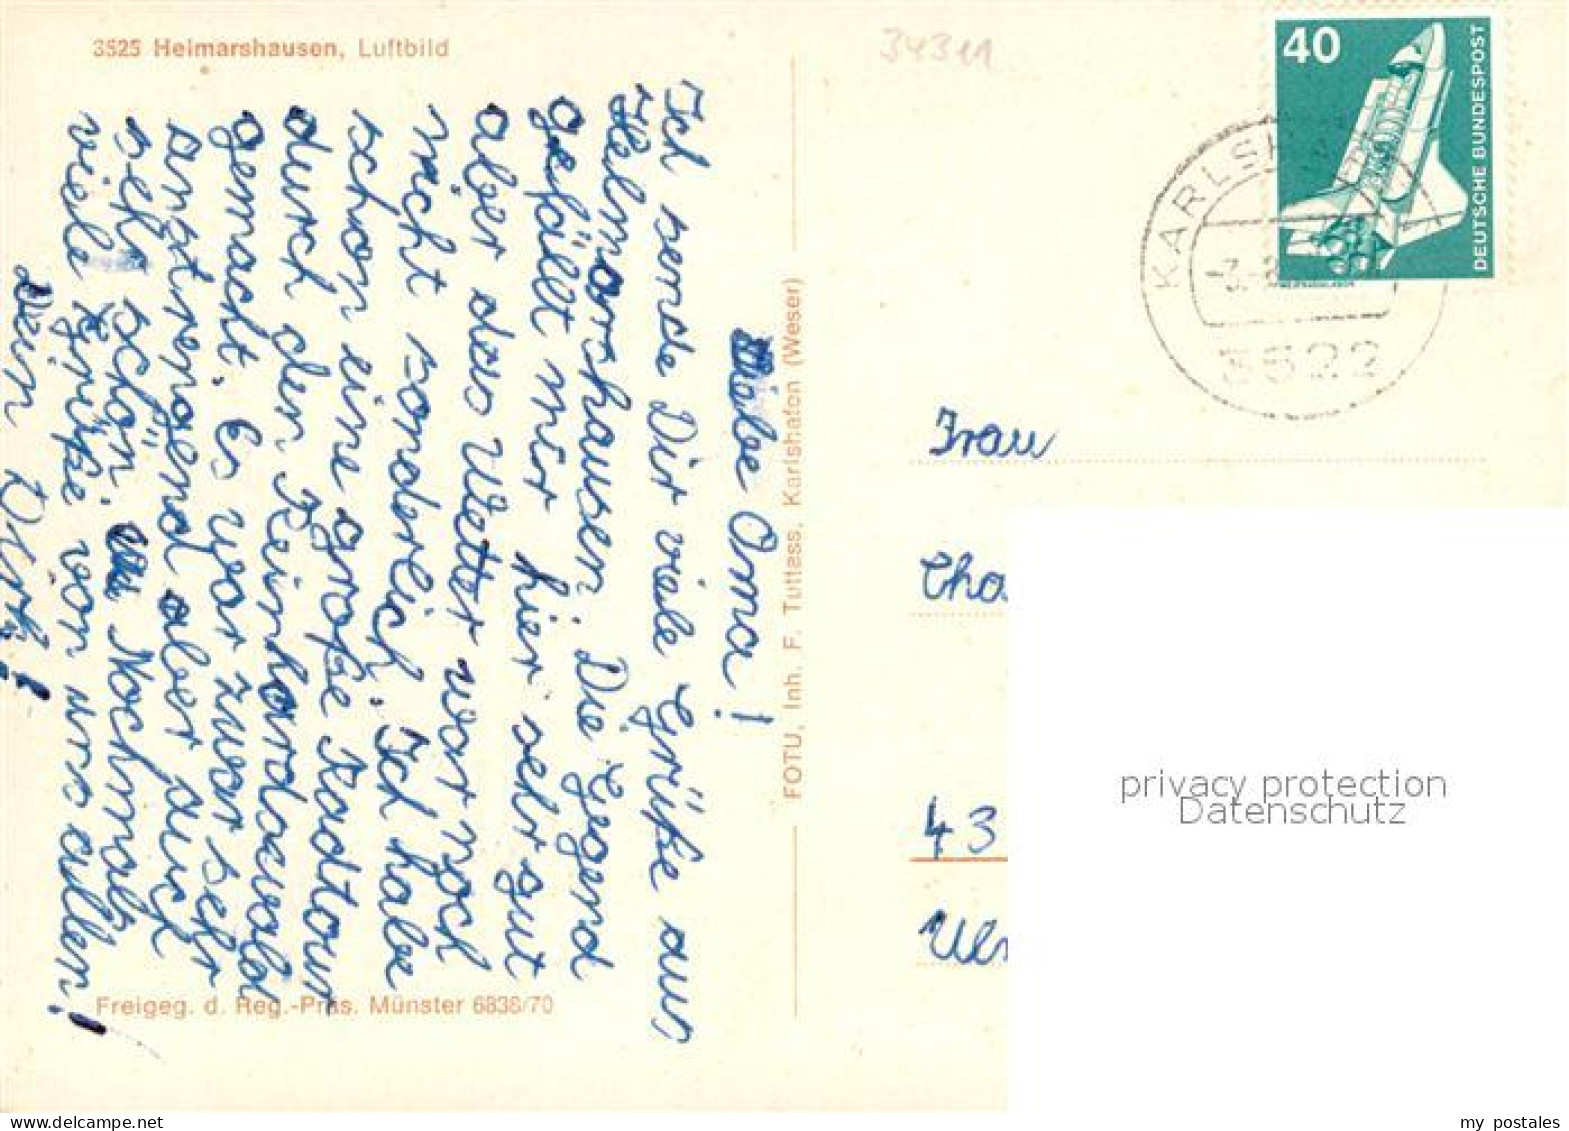 3525 Helmarshausen, Luftbild
34311
40
DEUTSCHE BUNDESPOST
KARLSH
-3.
3522
Liebe Oma!
Ich sende Dir viele Grüße aus
Helmarshausen. Die Gegend
gefällt mir hier sehr gut
aber das Wetter war noch
nicht sonderlich. Ich habe
schon eine große Radtour
durch den Reinhardswald
gemacht. Es war zwar sehr
anstrengend aber auch
sehr schön. Nochmals
viele Grüße von uns allen!
Dein Dirk!
FOTU, Inh. F. Tuttass, Karlshafen (Weser)
Freigeg. d. Reg.-Präs. Münster 6838/70
Frau
Tho
43
privacy protection
Datenschutz
my postales
www.delcampe.net